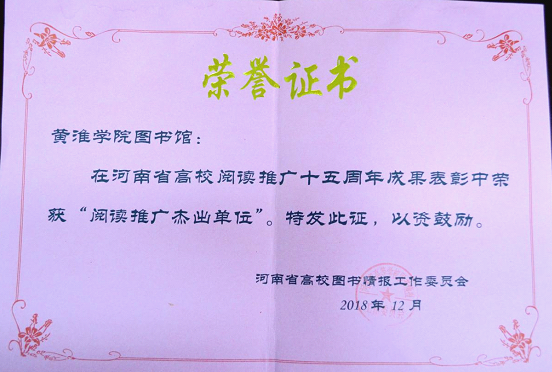 荣誉证书
黄淮学院图书馆：
在河南省高校阅读推广十五周年成果表彰中荣
获“阅读推广杰出单位”。特发此证，以资鼓励。
河南省高校图书情报工作委员会
2018年12月